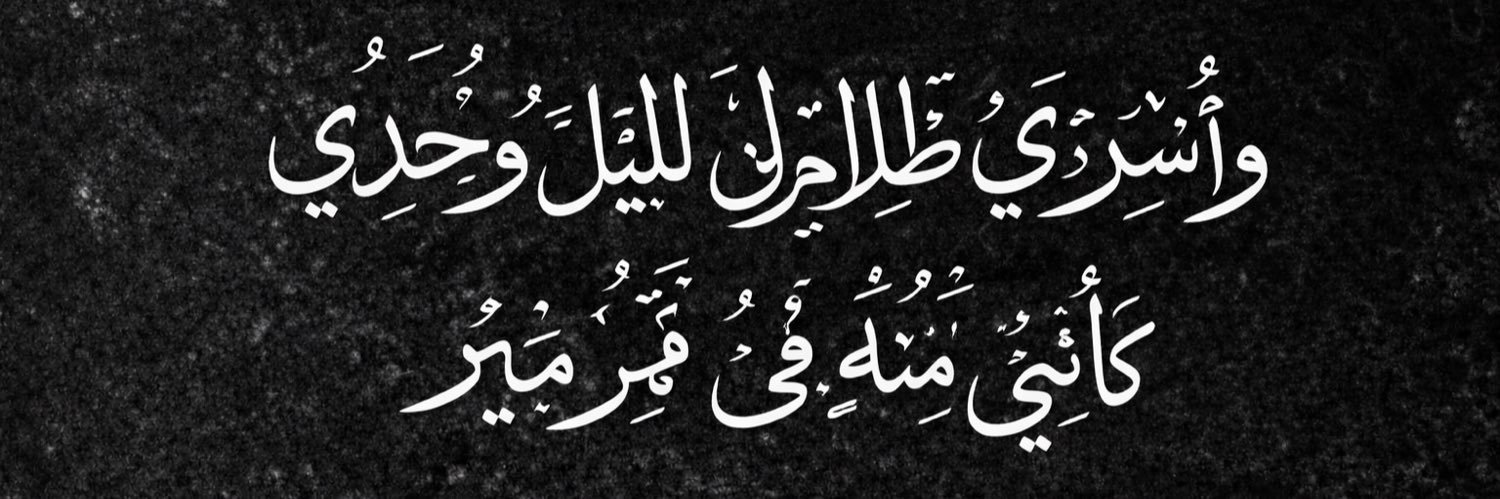 وأسري ظلام لليل وحدي
كأني منه في قمر مير